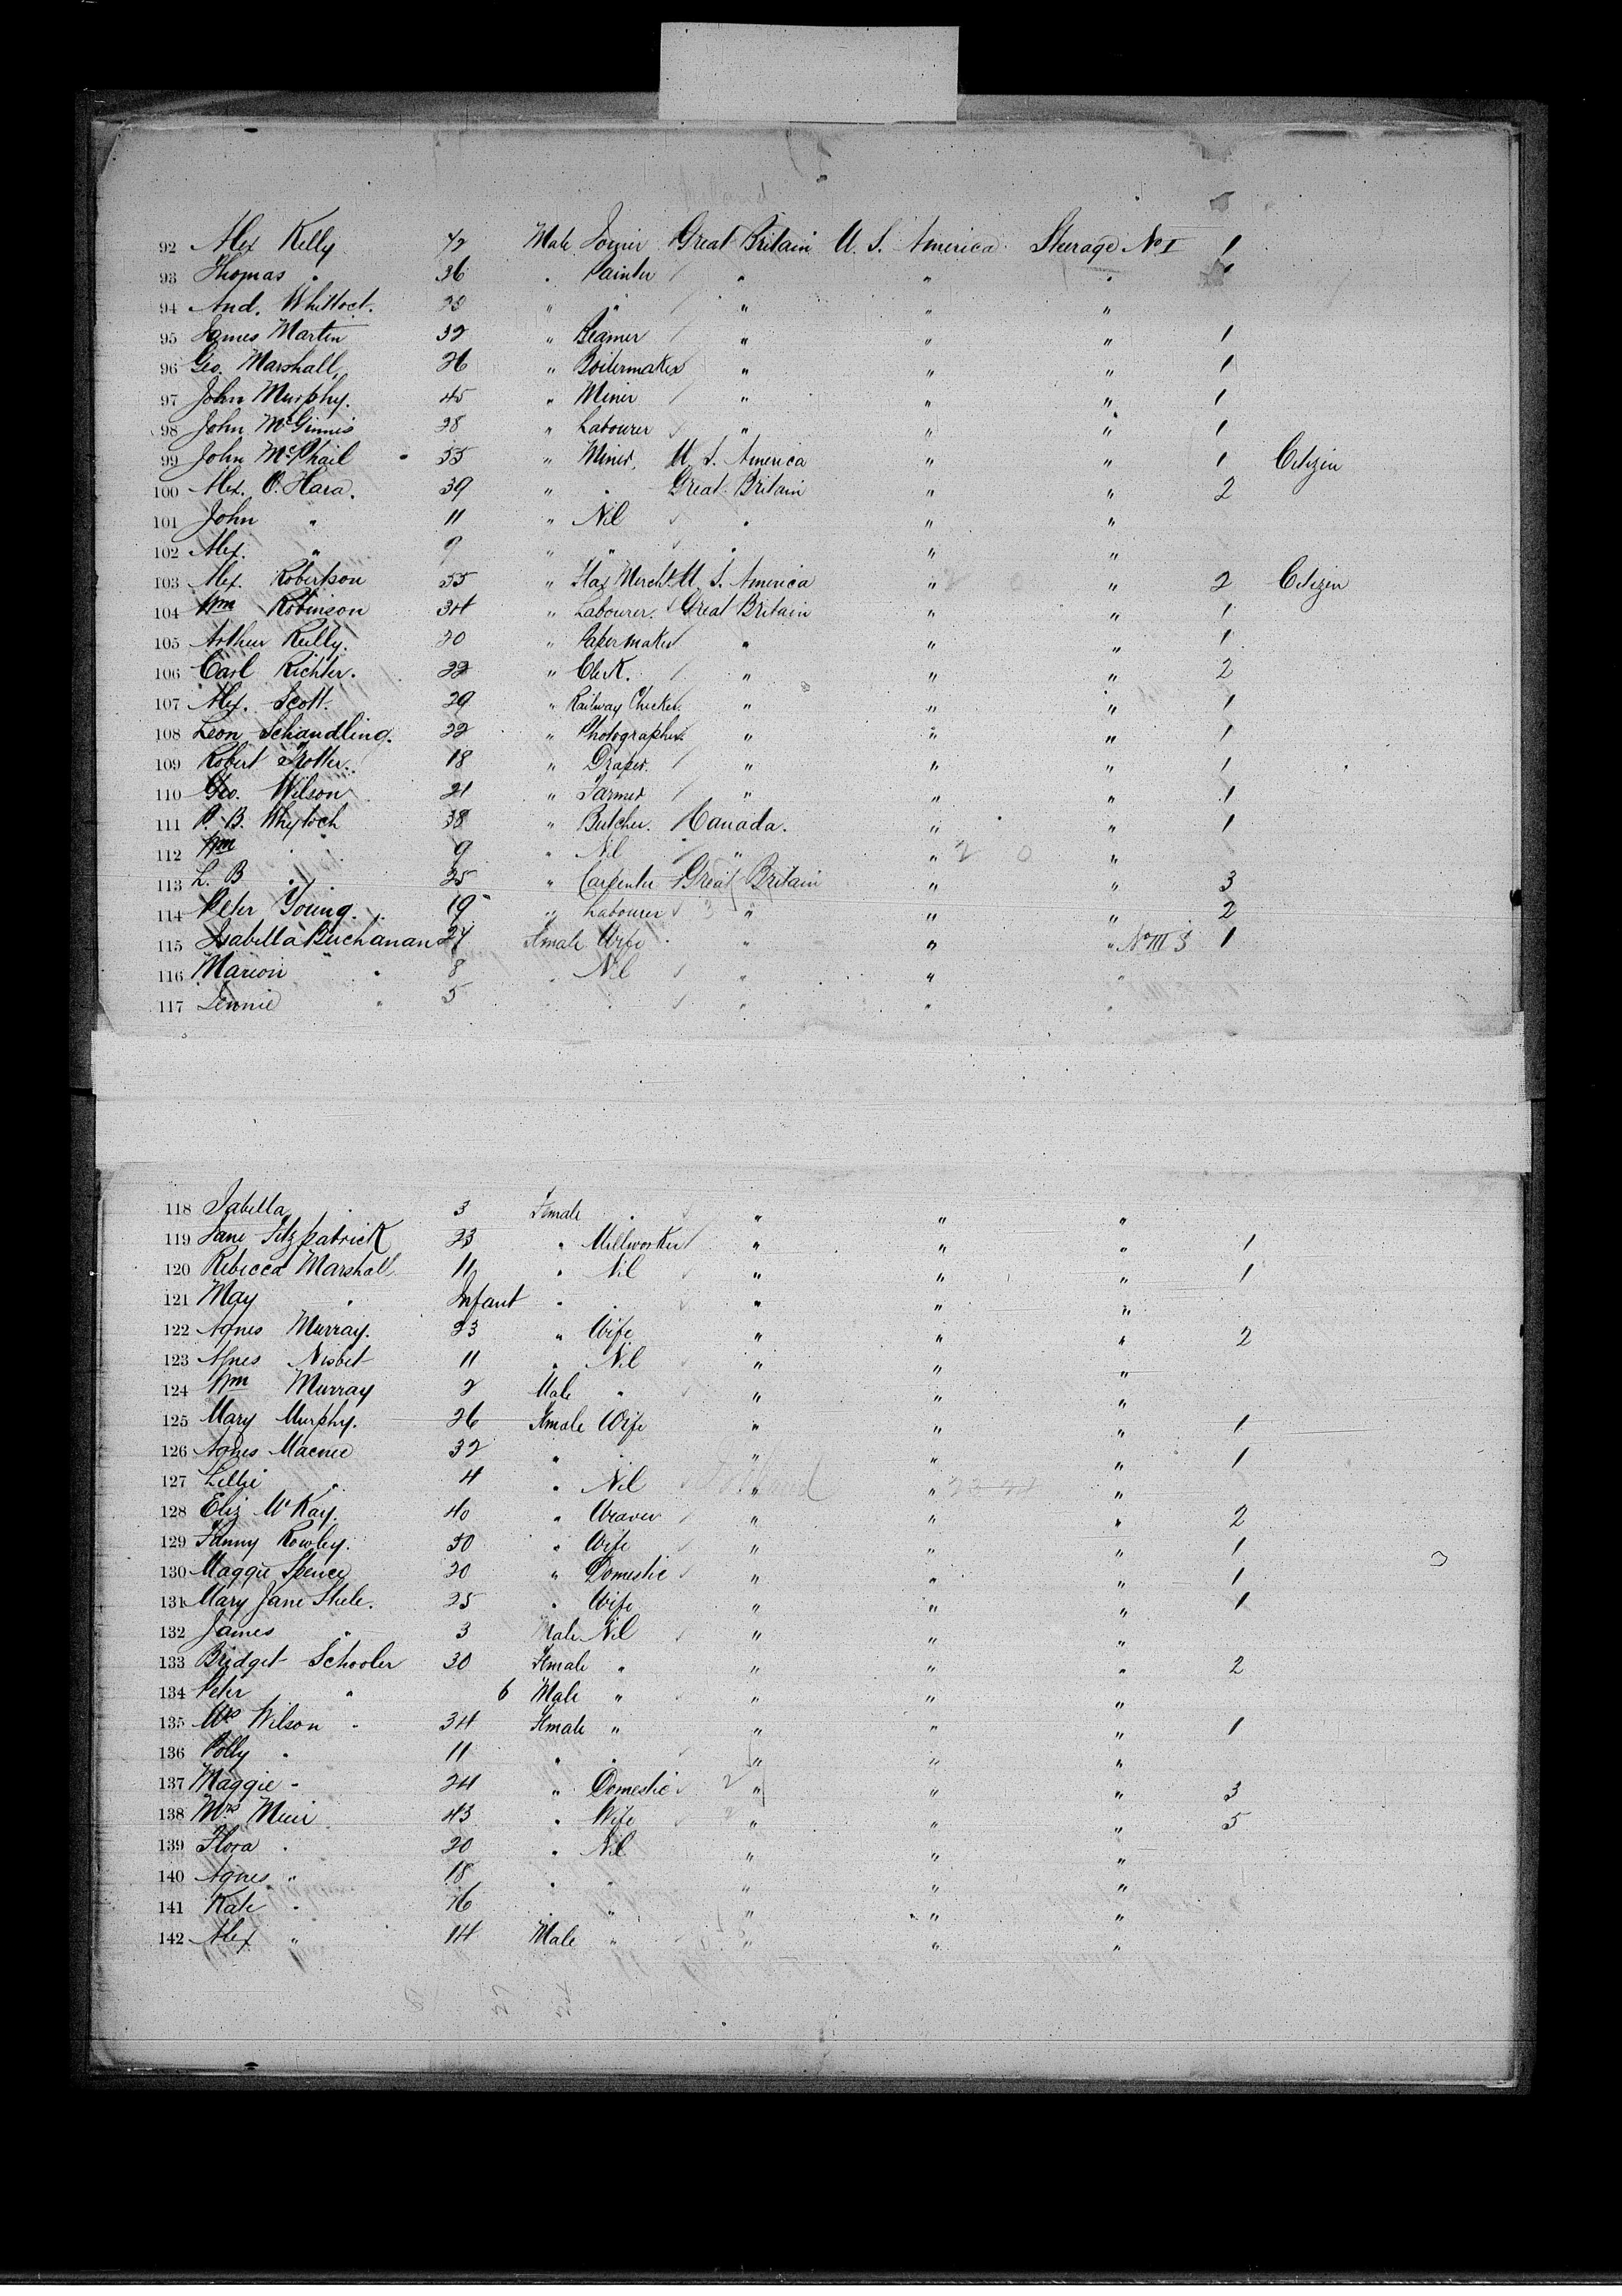 92 Alex Kelly 42 Male Joiner Great Britain U. S. America Steerage No I 1
93 Thomas " 36 " Painter " " " 1
94 And. Whittock. " " " " "
95 James Martin 32 " Beamer " " " 1
96 Geo. Marshall 26 " Boilermaker " " " 1
97 John Murphy. 45 " Miner " " " 1
98 John McGinnis 28 " Labourer " " " 1
99 John McPhail 55 " Miner, U. S. America " " 1 Citizen
100 Alex. O. Hara. 39 " " Great Britain " " 2
101 John " 11 " Nil " " "
102 Alex. " 9 " " " " "
103 Alex. Robertson 55 " Flax Mercht. U. S. America " " 2 Citizen
104 Wm Robinson 34 " Labourer. Great Britain " " 1
105 Arthur Reilly. 20 " Papermaker " " " 1
106 Carl Richter. 22 " Clerk. " " " 2
107 Alex. Scott. 29 " Railway Checker. " " " 1
108 Leon Schandling. 22 " Photographer. " " " 1
109 Robert Trotter. 18 " Draper. " " " 1
110 Geo. Wilson 21 " Farmer " " " 1
111 P. B. Whytoch 38 " Butcher. Canada. " " 1
112 Wm " 9 " Nil " " 2 0 "
113 L. B " 25 " Carpenter Great Britain " " 3
114 Peter Young. 19 " Labourer 3 " " " 2
115 Isabella Buchanan 27 Female Wife " " " No III S 1
116 Marion " 8 " Nil " " "
117 Jennie " 5 " " " " "
118 Isabella " 3 Female " " " "
119 Jane Fitzpatrick 23 " Millworker " " " 1
120 Rebecca Marshall 11 " Nil " " " 1
121 May " Infant " " " " "
122 Agnes Murray. 23 " Wife " " " 2
123 Agnes Nisbet 11 " Nil " " "
124 Wm Murray 2 Male " " " "
125 Mary Murphy. 26 Female Wife " " " 1
126 Agnes Macnee 32 " " " " " 1
127 Lillie " 4 " Nil " " "
128 Eliz McKay. 40 " Weaver " " " 2
129 Fanny Rowley. 50 " Wife " " " 1
130 Maggie Spence 20 " Domestic " " " 1
131 Mary Jane Steele. 25 " Wife " " " 1
132 James " 3 Male Nil " " "
133 Bridget Schooler 30 Female " " " " 2
134 Peter " 6 Male " " " "
135 Mrs Wilson 34 Female " " " " 1
136 Polly " 11 " " " " "
137 Maggie " 24 " Domestic 2 " " " 3
138 Mrs Muir 43 " Wife " " " 5
139 Flora " 20 " Nil " " "
140 Agnes " 18 " " " " "
141 Kate " 16 " " " " "
142 Alex " 14 Male " " " "